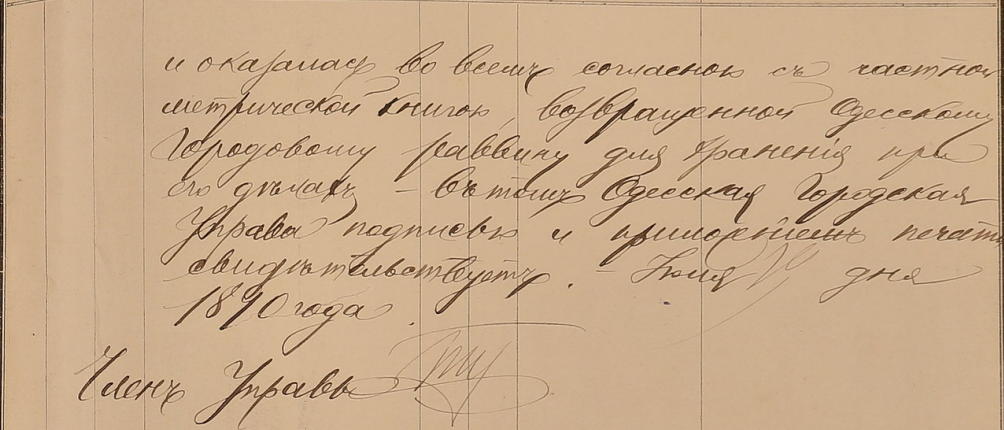 и оказалась во всемъ согласною съ частной
метрической книгою, возвращенной Одесскому
Городовому раввину для храненія при
его дѣлахъ – въ томъ Одесская Городская
Управа подписью и приложеніемъ печати
свидѣтельствуетъ. – Іюля дня
1890 года.
Членъ Управы